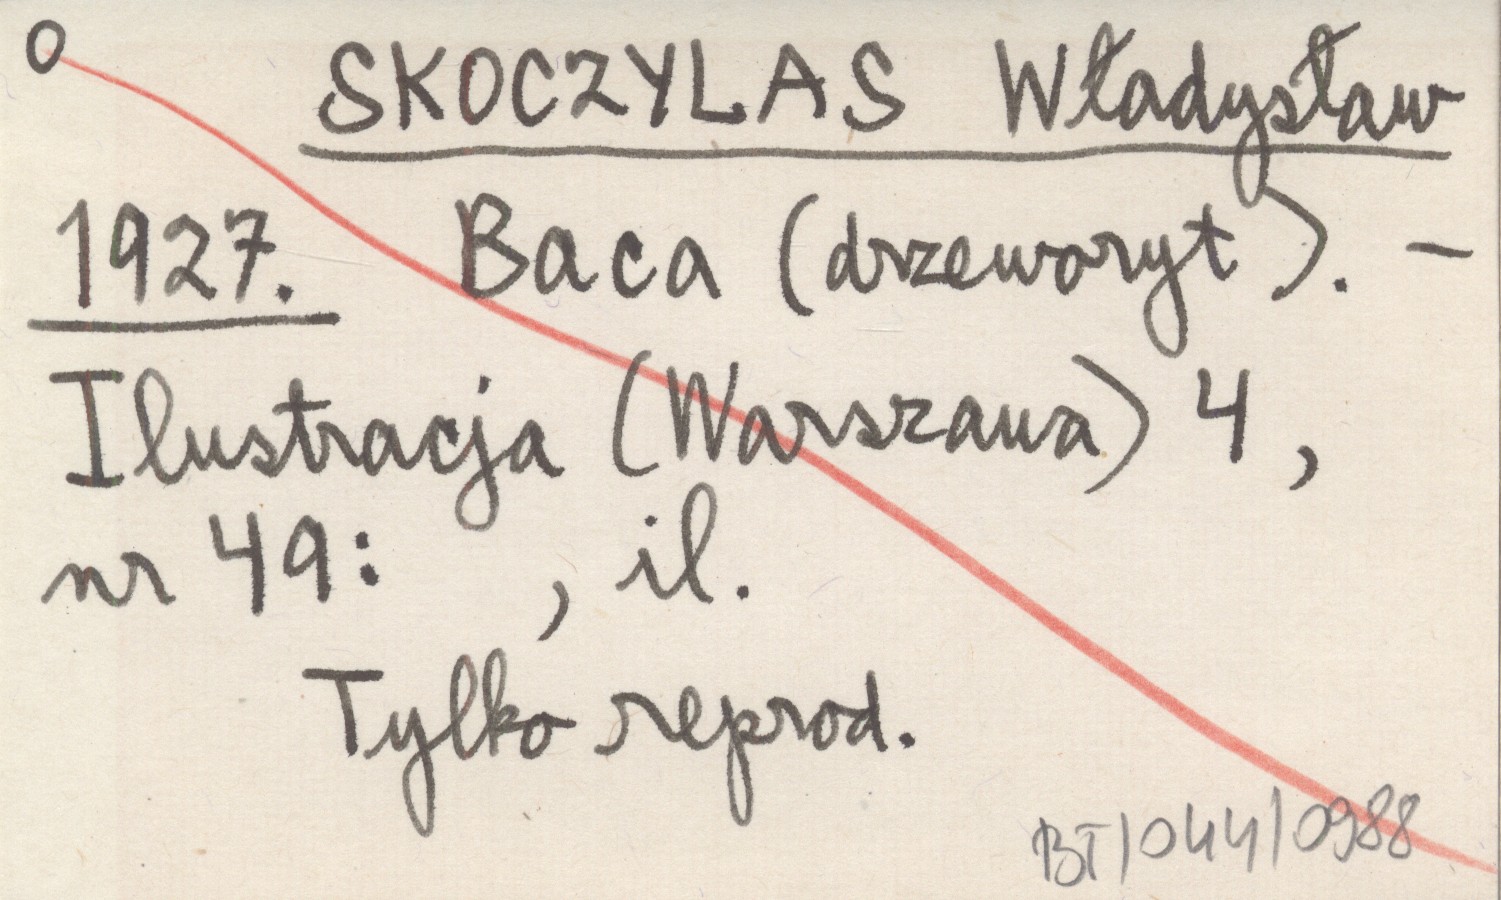 O
SKOCZYLAS Władysław
1927. Baca (drzeworyt). –
Ilustracja (Warszawa) 4,
nr 49: , il.
Tylko reprod.
BT/044/0988